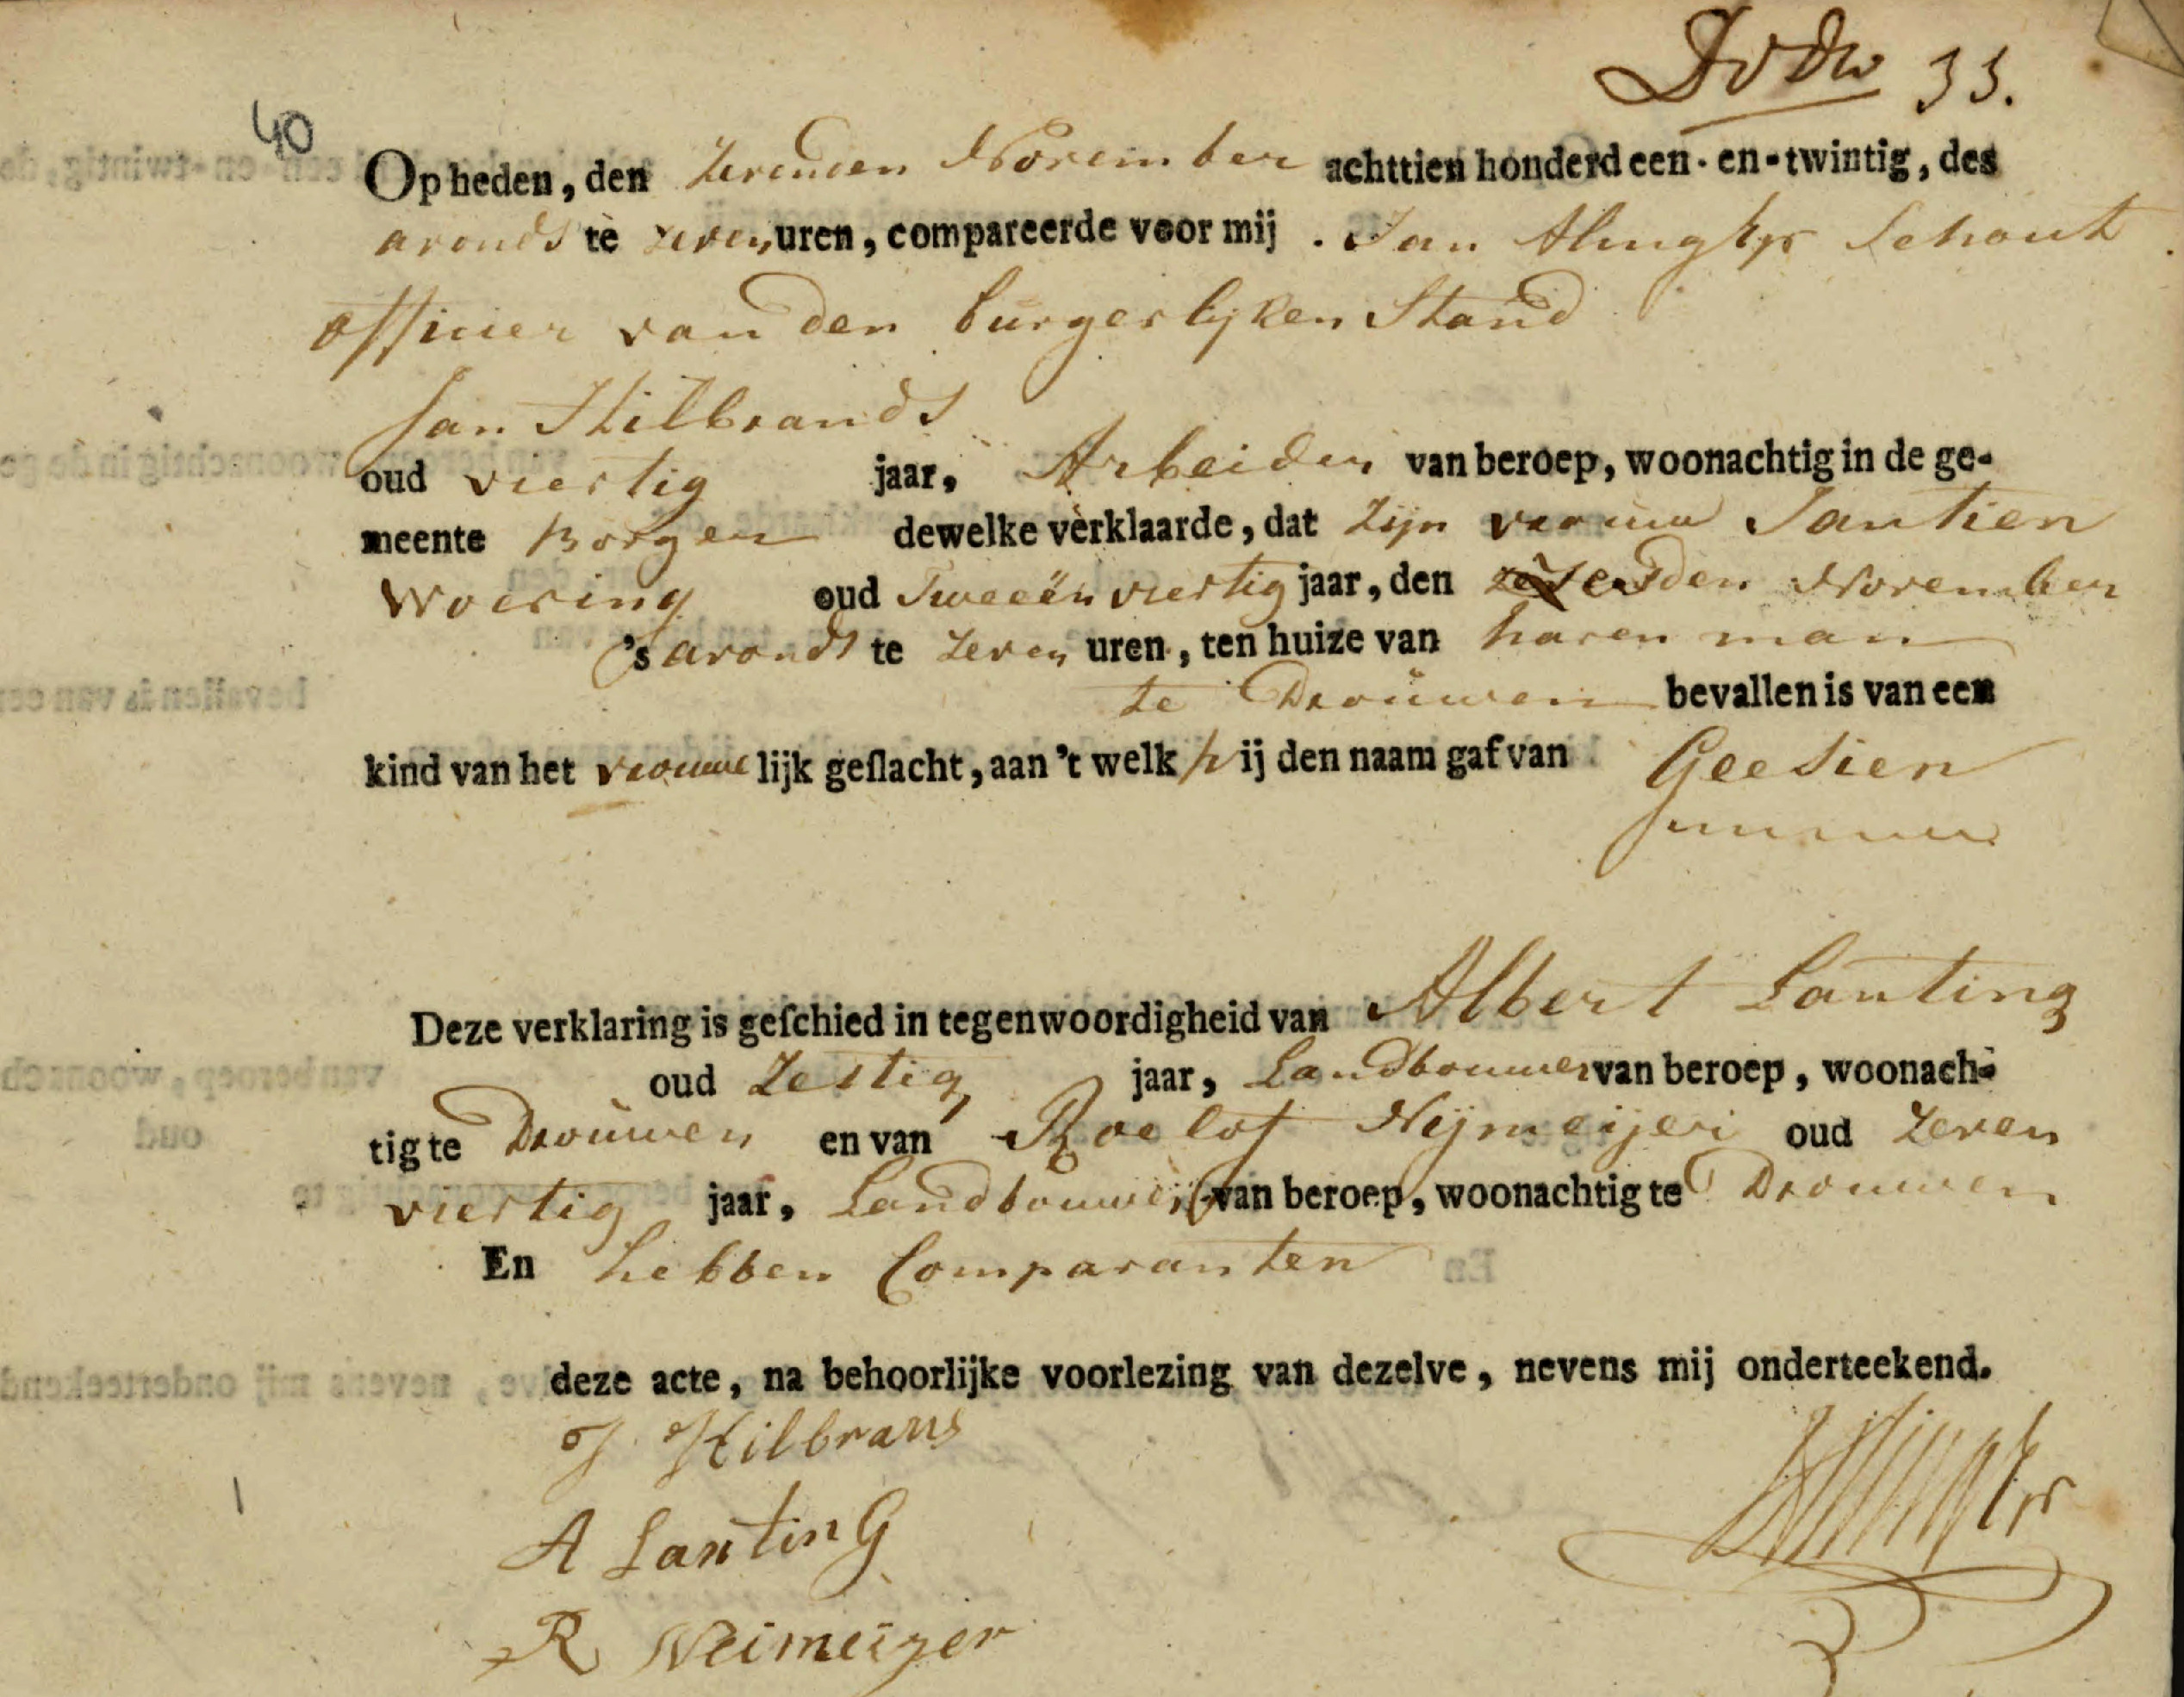 33.
40
Op heden, den Zevenden November achttien honderd een-en-twintig, des
avonds te zeven uren, compareerde voor mij Jan Alingh Schout
officier van den burgerlyken Stand
Jan Hilbrands
oud viertig jaar, Arbeider van beroep, woonachtig in de ge-
meente Borger dewelke verklaarde, dat Zijn vrouw Jantien
Woering oud Tweeën viertig jaar, den November
's avonds te Zeven uren, ten huize van haren man
te Drouwen bevallen is van een
kind van het vrouwe lijk geslacht, aan 't welk hij den naam gaf van Geesien
Deze verklaring is geschied in tegenwoordigheid van Albert Lanting
oud Zestig jaar, Landbouwer van beroep, woonach-
tig te Drouwen en van Roelof Nijmeijer oud Zeven
viertig jaar, Landbouwer van beroep, woonachtig te Drouwen
En hebben Comparanten
deze acte, na behoorlijke voorlezing van dezelve, nevens mij onderteekend.
J Hilbrans
A LantinG
R Neimeijer